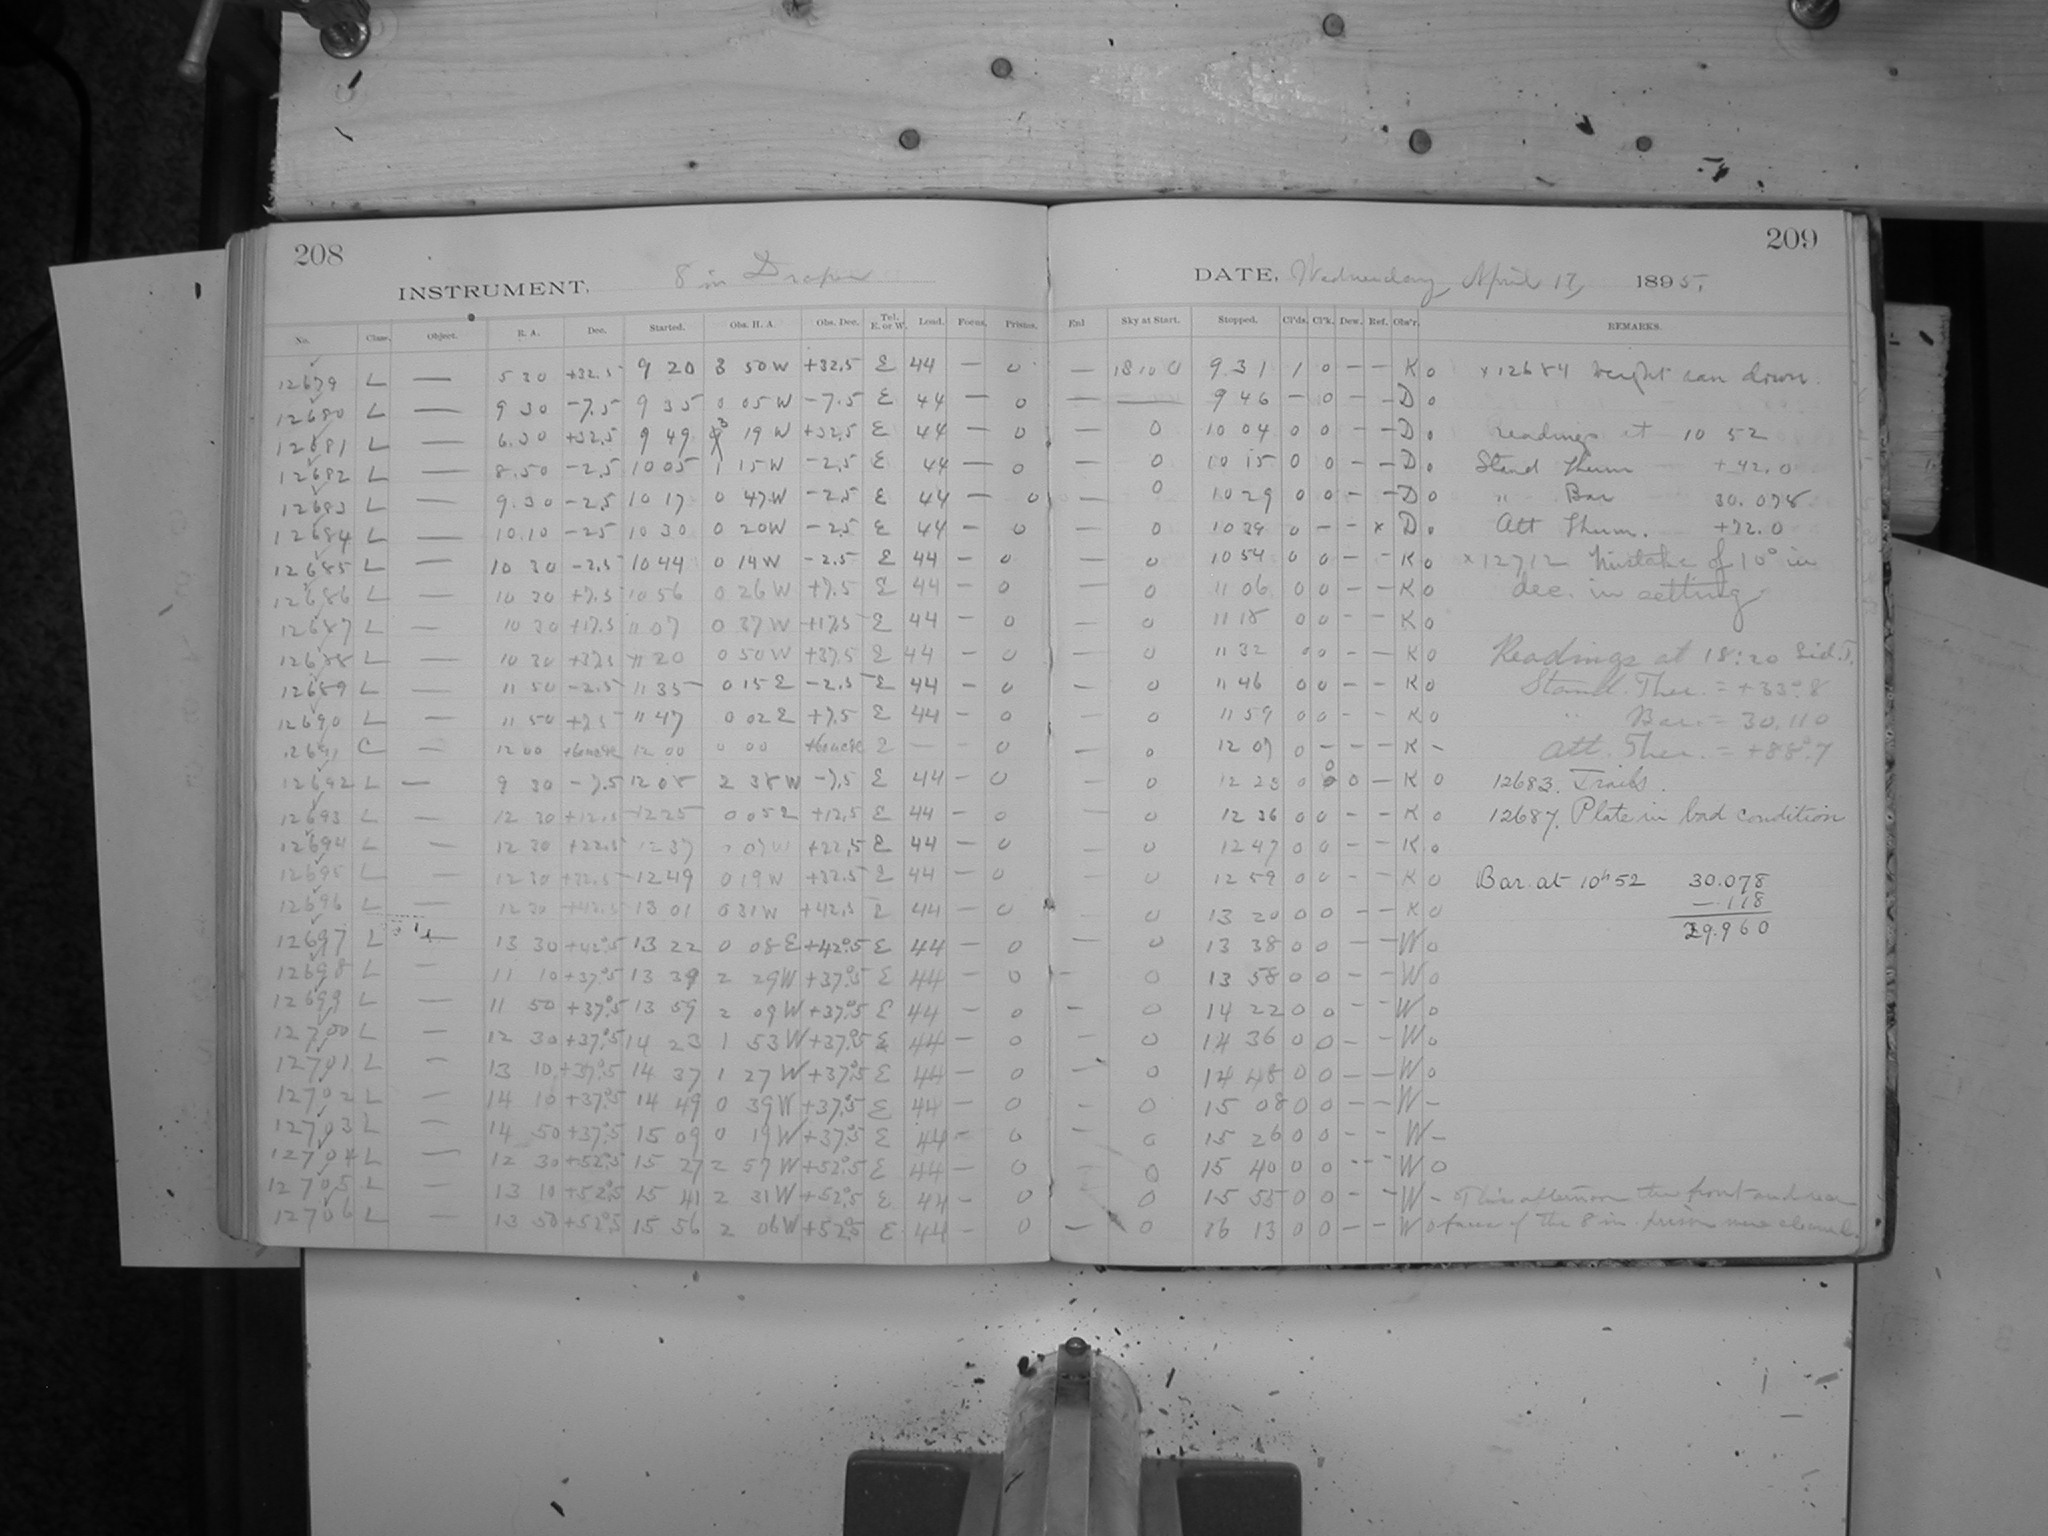 208
INSTRUMENT. 8 in Draper
No. Class. Object. R. A. Dec. Started. Obs. H. A. Obs. Dec. Tel. E. or W. Load. Focus. Prisms.
12679 L — 5 30 +32.5 9 20 3 50 W +32.5 E 44 — 0
12680 L — 9 30 -7.5 9 35 0 05 W -7.5 E 44 — 0
12681 L — 6.30 +32.5 9 49 3 19 W +32.5 E 44 — 0
12682 L — 8.50 -2.5 10 05 1 15 W -2.5 E 44 — 0
12683 L — 9.30 -2.5 10 17 0 47 W -2.5 E 44 — 0
12684 L — 10.10 -25 10 30 0 20 W -25 E 44 — 0
12685 L — 10 30 -2.5 10 44 0 14 W -2.5 E 44 — 0
12686 L — 10 30 +7.5 10 56 0 26 W +7.5 E 44 — 0
12687 L — 10 30 +17.5 11 07 0 37 W +17.5 E 44 — 0
12688 L — 10 30 +37.5 11 20 0 50 W +37.5 E 44 — 0
12689 L — 11 50 -2.5 11 35 0 15 E -2.5 E 44 — 0
12690 L — 11 50 +7.5 11 47 0 02 E +7.5 E 44 — 0
12691 C — 12 00 12 00 0 00 E — — 0
12692 L — 9 30 -7.5 12 08 2 38 W -7.5 E 44 — 0
12693 L — 12 30 +12.5 12 25 0 05 E +12.5 E 44 — 0
12694 L — 12 30 +22.5 12 37 0 07 W +22.5 E 44 — 0
12695 L — 12 30 +32.5 12 49 0 19 W +32.5 E 44 — 0
12696 L — 12 30 +42.5 13 01 0 31 W +42.5 E 44 — 0
12697 L — 13 30 +42°.5 13 22 0 08 E +42°.5 E 44 — 0
12698 L — 11 10 +37°.5 13 39 2 29 W +37°.5 E 44 — 0
12699 L — 11 50 +37°.5 13 59 2 09 W +37°.5 E 44 — 0
12700 L — 12 30 +37°.5 14 23 1 53 W +37°.5 E 44 — 0
12701 L — 13 10 +37°.5 14 37 1 27 W +37°.5 E 44 — 0
12702 L — 14 10 +37°.5 14 49 0 39 W +37°.5 E 44 — 0
12703 L — 14 50 +37°.5 15 09 0 19 W +37°.5 E 44 — 0
12704 L — 12 30 +52°.5 15 27 2 57 W +52°.5 E 44 — 0
12705 L — 13 10 +52°.5 15 41 2 31 W +52°.5 E 44 — 0
12706 L — 13 50 +52°.5 15 56 2 06 W +52°.5 E 44 — 0
209
DATE, Wednesday, April 17, 1895.
Enl Sky at Start. Stopped. Cl'ds. Cl'k. Dew. Ref. Obs'r. REMARKS.
— 18 10 0 9 31 1 0 — — K 0 x 12684 weight ran down.
— — 9 46 — 0 — — D 0
— 0 10 04 0 0 — — D 0 Readings at 10 52
— 0 10 15 0 0 — — D 0 Stand Therm +42.0
— 0 10 29 0 0 — — D 0 " Bar 30.078
— 0 10 39 0 — — x D 0 Att Therm. +72.0
— 0 10 54 0 0 — — K 0 x 12712 Mistake of 10° in
— 0 11 06 0 0 — — K 0 dec. in setting
— 0 11 18 0 0 — — K 0
— 0 11 32 0 0 — — K 0 Readings at 18:20 Sid. T.
— 0 11 46 0 0 — — K 0 Stand. Ther. = +33°.8
— 0 11 59 0 0 — — K 0 " Bar. = 30.110
— 0 12 07 0 — — — K — Att. Ther. = +88°.7
— 0 12 23 0 0 0 — K 0 12683. Trails.
— 0 12 36 0 0 — — K 0 12687. Plate in bad condition
— 0 12 47 0 0 — — K 0
— 0 12 59 0 0 — — K 0 Bar. at 10h 52 30.078
— 0 13 20 0 0 — — K 0 -.118
— 0 13 38 0 0 — — W 0 29.960
— 0 13 58 0 0 — — W 0
— 0 14 22 0 0 — — W 0
— 0 14 36 0 0 — — W 0
— 0 14 48 0 0 — — W 0
— 0 15 08 0 0 — — W —
— 0 15 26 0 0 — — W —
— 0 15 40 0 0 — — W 0
— 0 15 55 0 0 — — W — This afternoon the front and rear
— 0 16 13 0 0 — — W 0 faces of the 8 in. prism were cleaned.